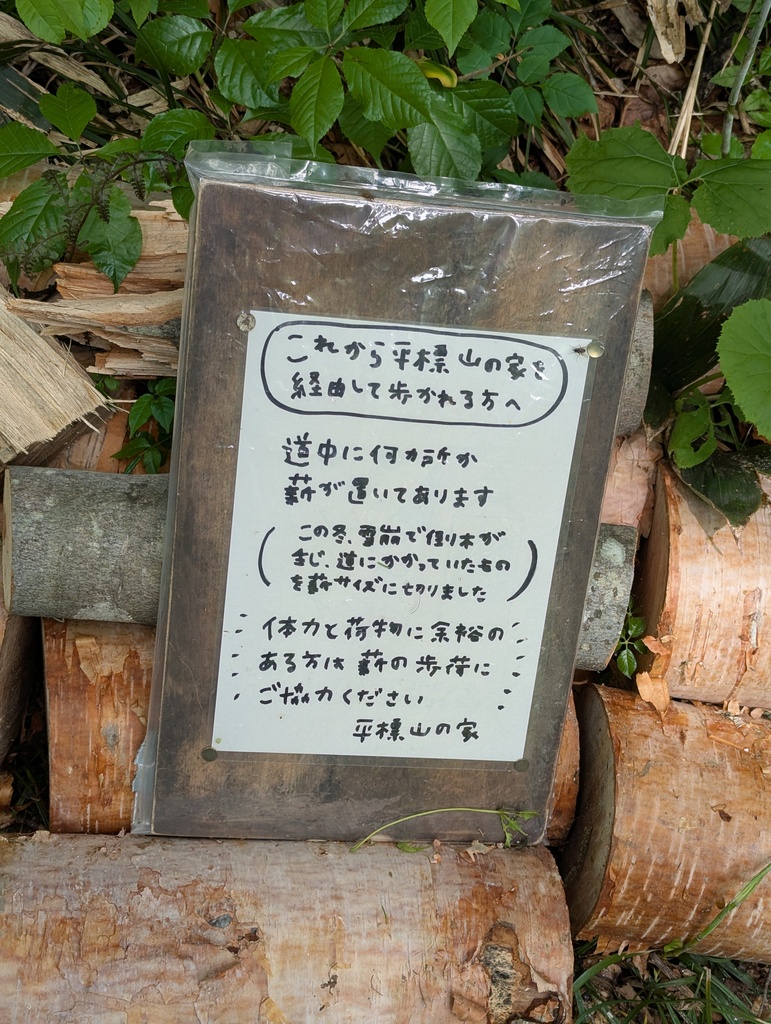 これから平標山の家を
経由して歩かれる方へ
道中に何カ所か
薪が置いてあります
(この冬、雪崩で倒木が
生じ、道にかかっていたもの
を薪サイズに切りました)
体力と荷物に余裕の
ある方は薪の歩荷に
ご協力ください
平標山の家